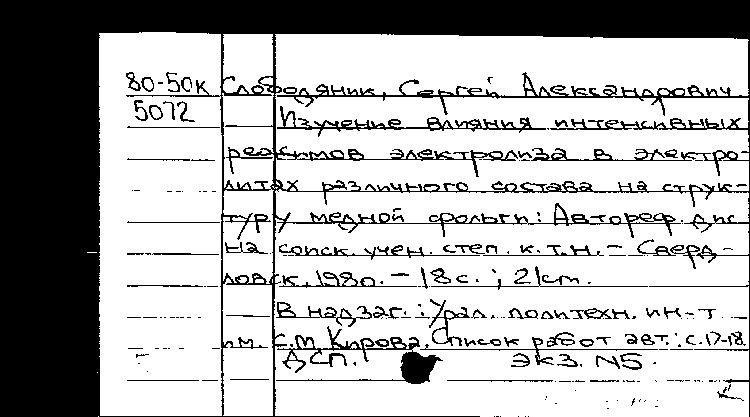 80-50к Слободяник, Сергей Александрович
5072 Изучение влияния интенсивных
режимов электролиза в электро-
литах различного состава на струк-
туру медной фольги: Автореф. дис.
на соиск. учен. степ. к.т.н. - Сверд-
ловск, 1980. - 18 с. ; 21 cm.
В надзаг.: Урал. политехн. ин-т
им. С.М. Кирова. Список работ авт.: с. 17-18
ДСП. экз. N5.